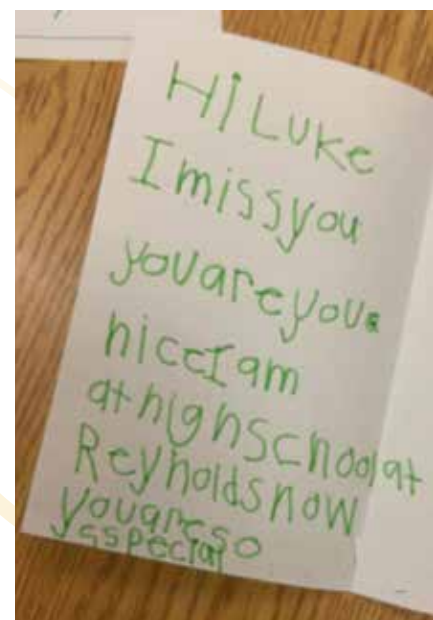 Hi Luke
I miss you
you are you a
nice I am
at high school at
Reynolds now
you are so
sspecial